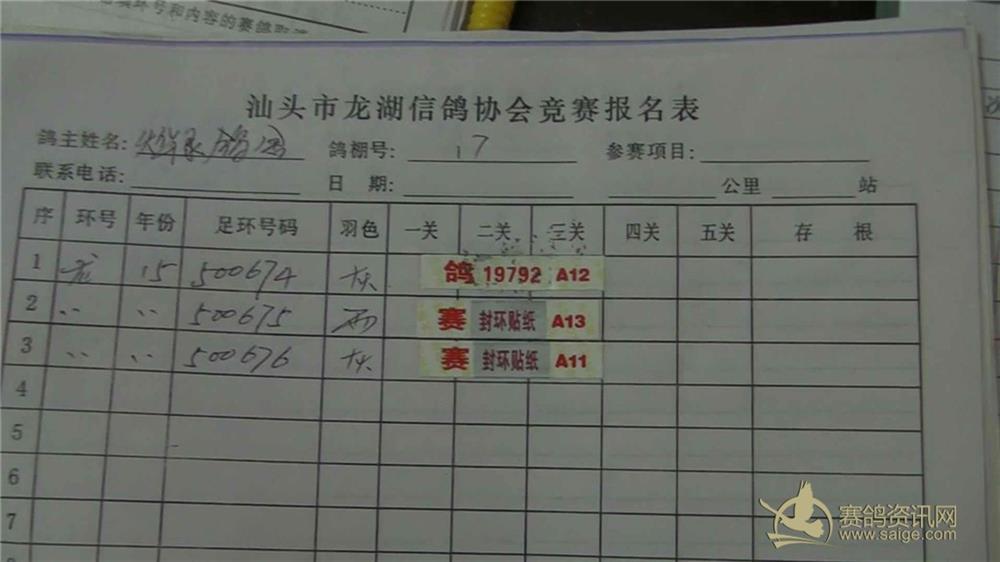 环号和内容的赛鸽取消
汕头市龙湖信鸽协会竞赛报名表
鸽主姓名: 鸽棚号: 17 参赛项目:
联系电话: 日 期: 公里 站
序 环号 年份 足环号码 羽色 一关 二关 三关 四关 五关 存 根
1 龙 15 500674 灰 鸽 19792 A12
2 〃 〃 500675 雨 赛 封环贴纸 A13
3 〃 〃 500676 灰 赛 封环贴纸 A11
4
5
6
7
赛鸽资讯网
www.saige.com